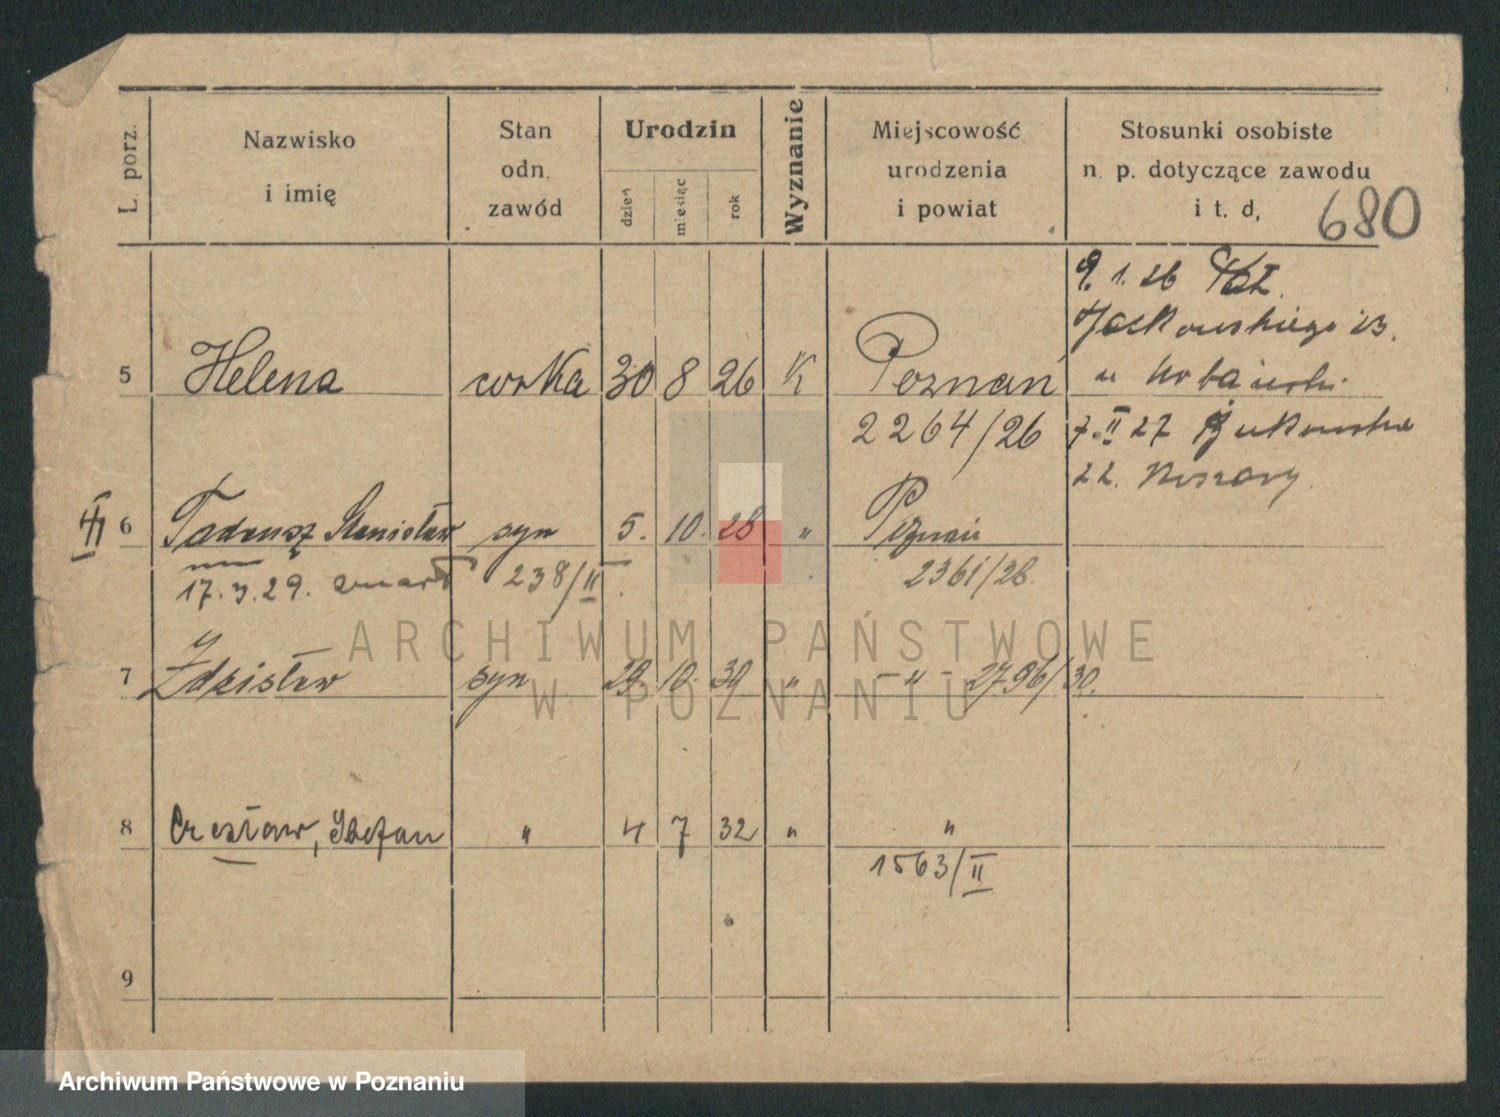 L. porz.
Nazwisko
i imię
Stan
odn.
zawód
Urodzin
dzień
miesiąc
rok
Wyznanie
Miejscowość
urodzenia
i powiat
Stosunki osobiste
n. p. dotyczące zawodu
i t. d,
680
9. 1. 26
Jackowskiego 23.
5 Helena corka 30 8 26 K Poznań
u
2264/26
7. II 27 Bukowska
22. Koszary
6 Tadeusz Stanisław syn 5. 10. 28 " Poznań
17. 3. 29. zmarł 238/II.
2361/28.
7 Zdzisław syn 29. 10. 30 " - " - 2796/30.
8 Czesław, Stefan " 4 7 32 " "
1563/II
9
ARCHIWUM PAŃSTWOWE
W POZNANIU
Archiwum Państwowe w Poznaniu